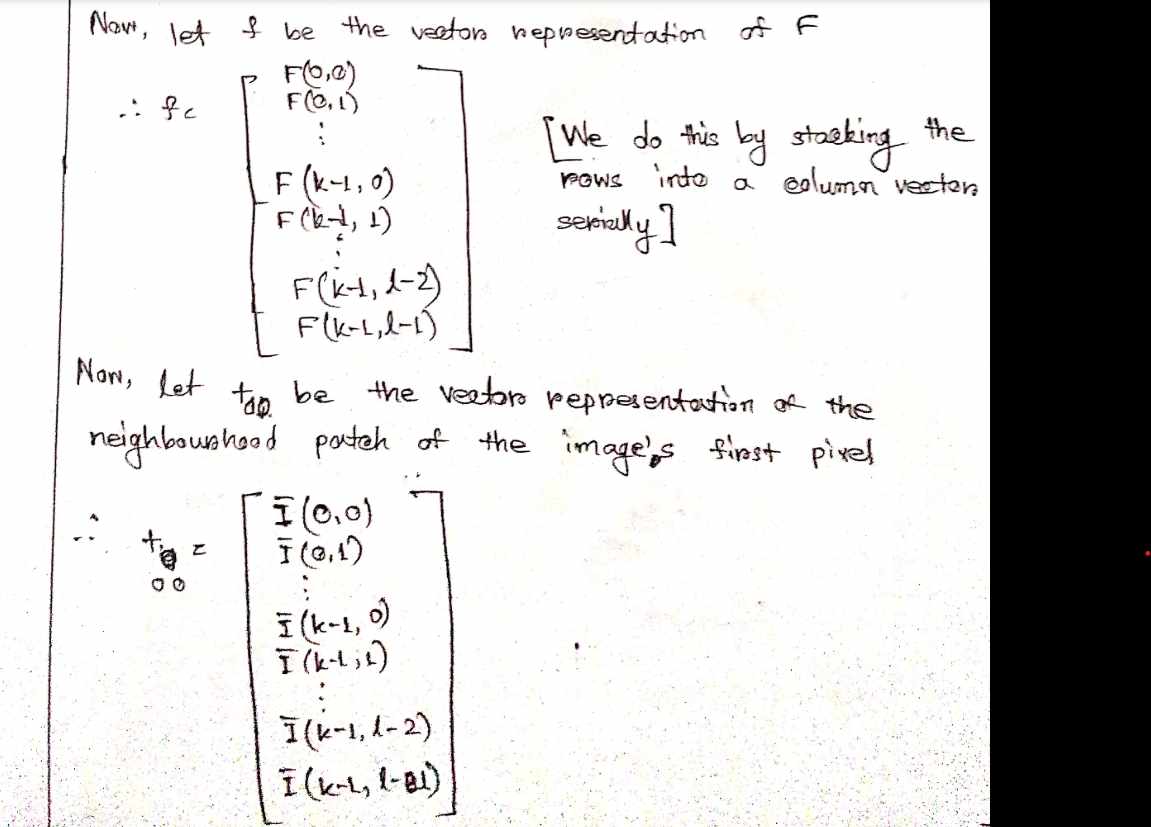 Now, let f be the vector representation of F
∴ f =
F(0,0)
F(0,1)
⋮
F(k-1, 0)
F(k-1, 1)
⋮
F(k-1, l-2)
F(k-1, l-1)
[We do this by stacking the
rows into a column vector
serially]
Now, let t₀₀ be the vector representation of the
neighbourhood patch of the image's first pixel
∴ t₀₀ =
Ī(0,0)
Ī(0,1)
⋮
Ī(k-1, 0)
Ī(k-1, 1)
⋮
Ī(k-1, l-2)
Ī(k-1, l-1)